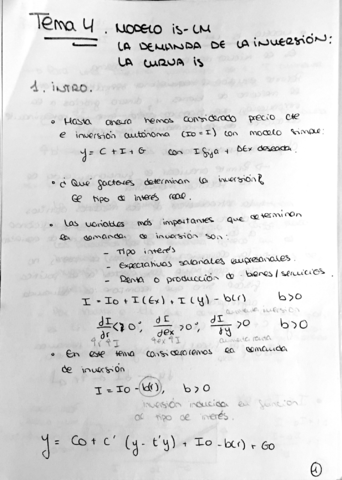 Tema 4. MODELO IS-LM
LA DEMANDA DE LA INVERSIÓN:
LA CURVA IS
1. INTRO.
• Hasta ahora hemos considerado precio cte
e inversión autónoma (Io = I) con modelo simple:
y = C + I + G con I fija +
• ¿Qué factores determinan la inversión?
El tipo de interés real.
• Las variables más importantes que determinan
la demanda de inversión son:
- Tipo interés
- Expectativas empresariales.
- Renta o producción de bienes/servicios
I = Io + I(Ex) + I(y) - b(r) b>0
dI/dr <0; dI/dex >0; dI/dy >0 b>0
• En este tema consideraremos la demanda
de inversión
I = Io - b(r), b>0
inversión inducida en función
de tipo de interés.
y = Co + c' (y - t'y) + Io - b(r) + Go
1